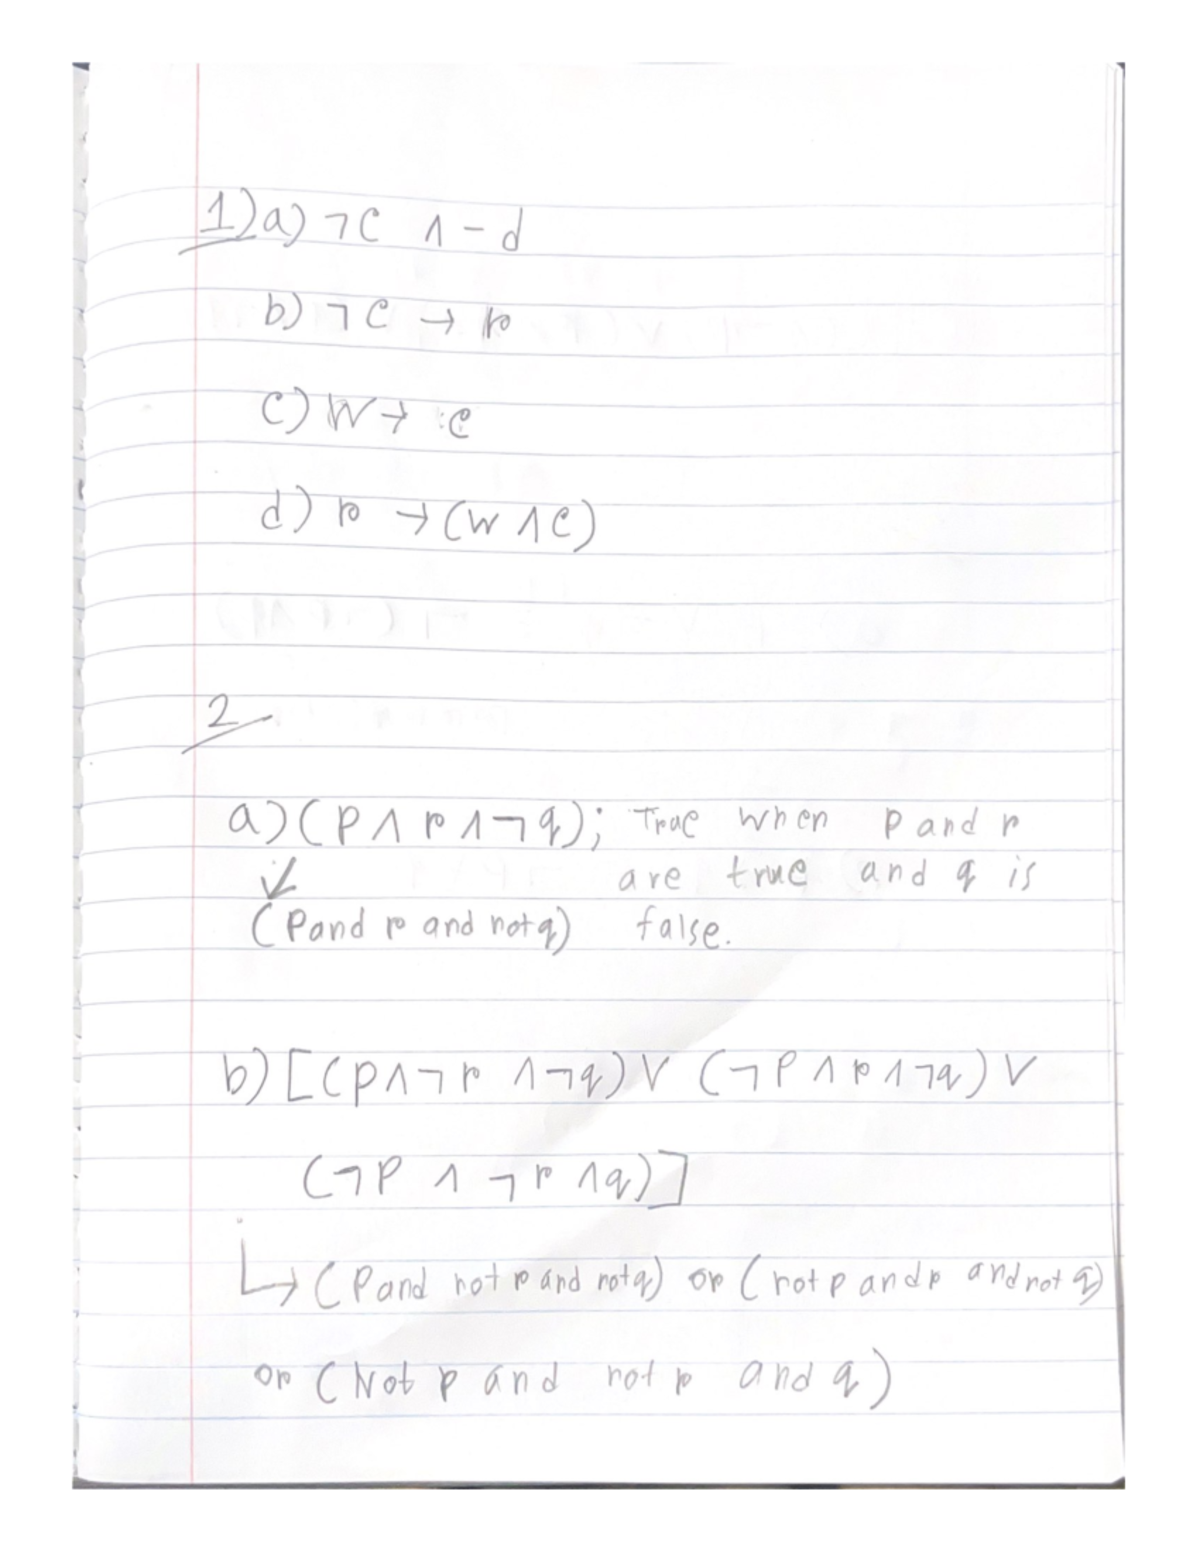 1) a) ¬C ∧ - d
b) ¬C → r
c) W → c
d) r → (W ∧ C)
2
a) (P ∧ r ∧ ¬q); True when p and r
are true and q is
(P and r and not q) false.
b) [(P ∧ ¬r ∧ ¬q) ∨ (¬P ∧ r ∧ ¬q) ∨
(¬P ∧ ¬r ∧ q)]
↳ (P and not r and not q) or (not p and r and not q)
or (Not p and not r and q)